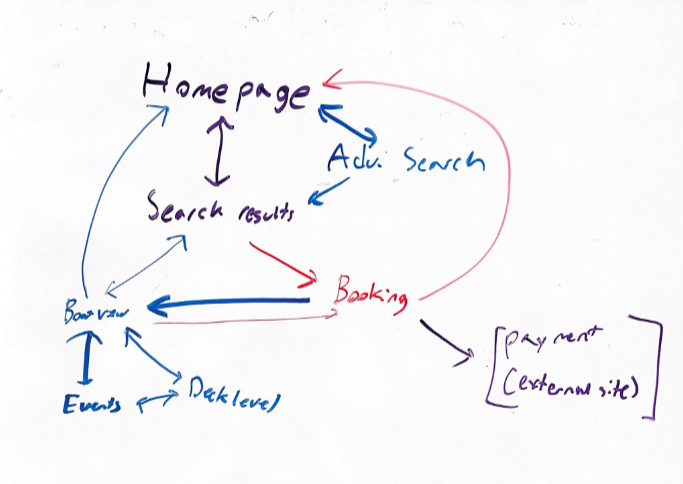 Homepage
Adv. Search
Search results
Booking
Boat view
[payment
(external site)]
Deck level
Events